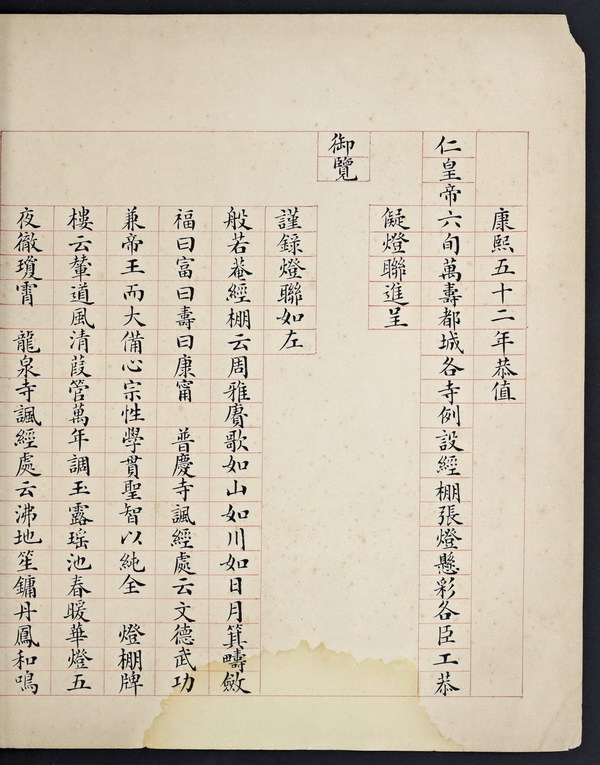 康熙五十二年恭值
仁皇帝六旬萬壽都城各寺例設經棚張燈懸彩各臣工恭
儗燈聯進呈
御覽
謹錄燈聯如左
般若菴經棚云周雅賡歌如山如川如日月箕疇斂
福曰富曰壽曰康甯　普慶寺諷經處云文德武功
兼帝王而大備心宗性學貫聖智以純全　燈棚牌
樓云輦道風清葭管萬年調玉露瑤池春暖華燈五
夜徹瓊霄　龍泉寺諷經處云沸地笙鏞丹鳳和鳴